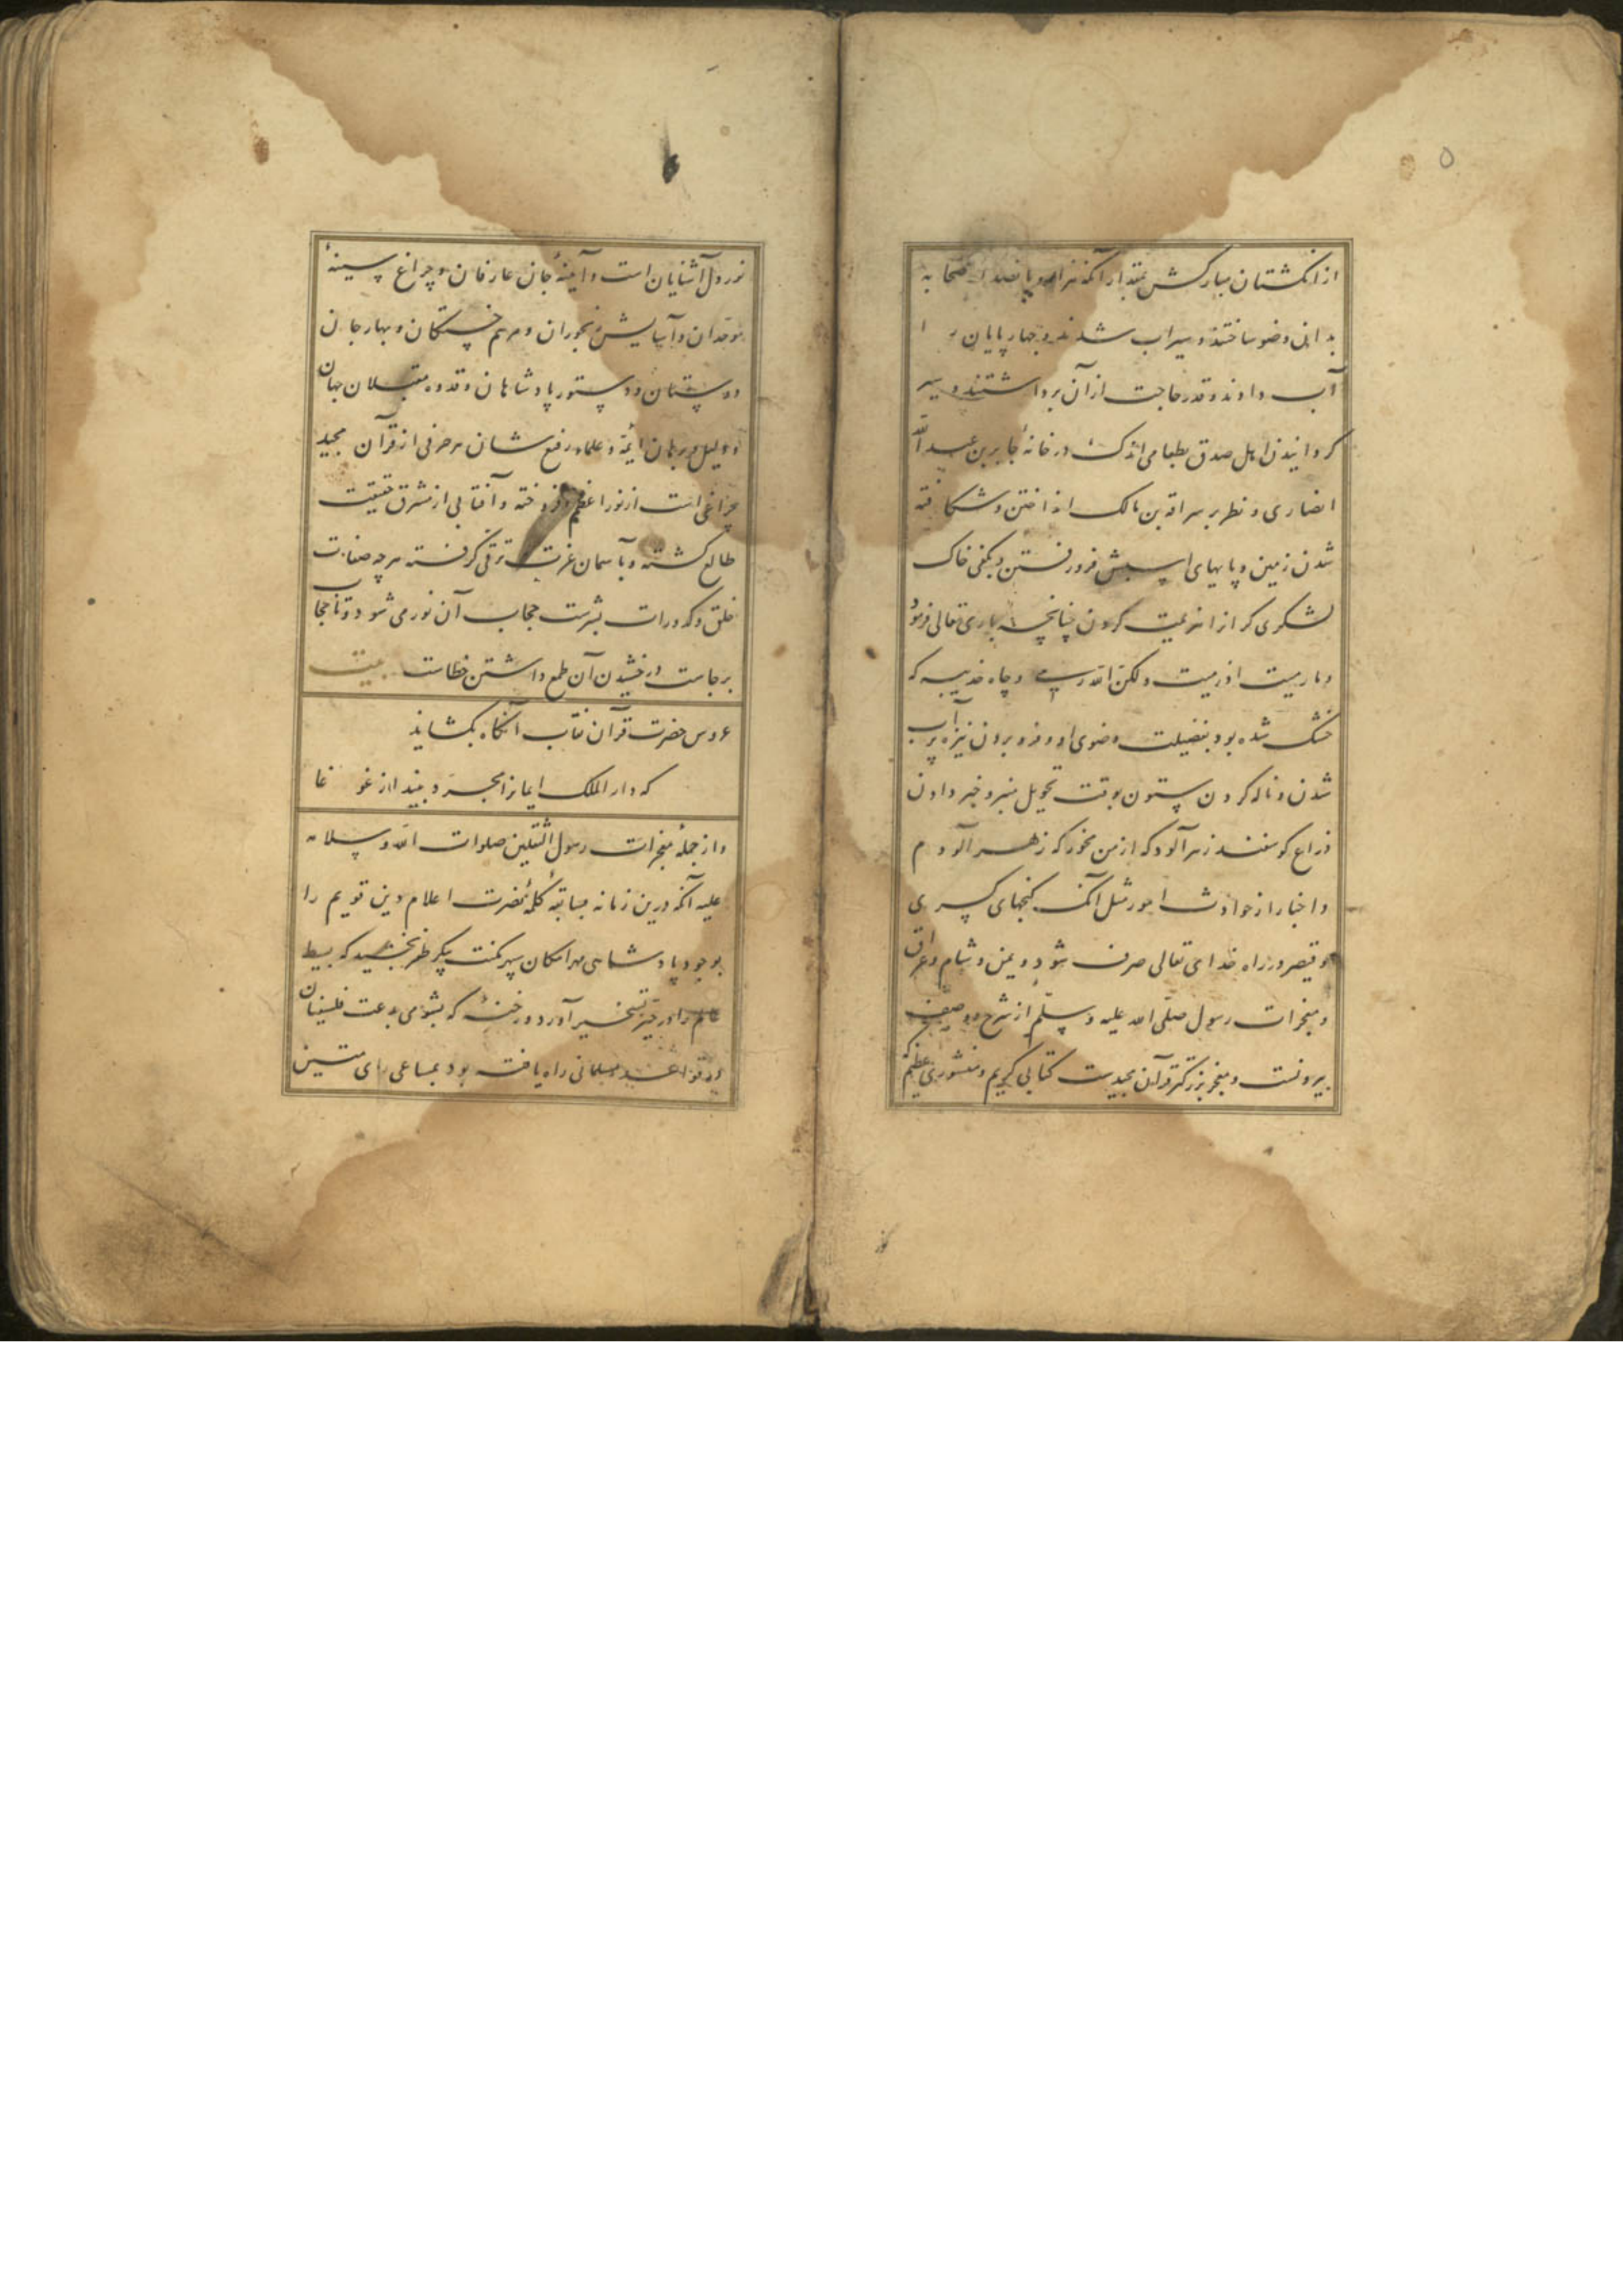 ۵
از انگشتان مبارکش بمقدار آنکه هزار و پانصد از صحابه
بدان وضو ساختند و سیراب شدند و چهارپایان را
آب دادند و قدر حاجت از آن برداشتند و سیر
کردانیدن اهل صدق بطعامی اندک در خانهٔ جابر بن عبد الله
انصاری و نظر بر سراقه بن مالک انداختن و شکافته
شدن زمین و پایهای اسبش فرو رفتن و بکفی خاک
لشکری کران را هزیمت کردن چنانچه باری تعالی فرمود
و ما رمیت اذ رمیت ولکن الله رمی و چاه حدیبیه که
خشک شده بود بفضیلت وضوی او و فرو بردن نیزه پر آب
شدن و ناله کردن ستون بوقت تحویل منبر و خبر دادن
ذراع کوسفند زهرآلود که از من مخور که زهرآلودم
و اخبار از حوادث امور مثل آنک کنجهای کسری
و قیصر در راه خدای تعالی صرف شود و یمن و شام و عراق
و معجزات رسول صلّی الله علیه و سلّم از شرح و وصف
بیرونست و معجز بزرکتر قرآن مجیدست کتابی کریم و منشوری عظیم که
نور
نور دل آشنایان است و آینهٔ جان عارفان و چراغ سینهٔ
موحدان و آسایش رنجوران و مرهم خستکان و بهار جان
دوستان و دستور پادشاهان و قدوه مقبلان جهان
و دلیل و برهان ایمّه و علماء رفیع شان هر حرفی از قرآن مجید
چراغی است از نور اعظم افروخته و آفتابی از مشرق حقیقت
طالع کشته و بآسمان عزت ترقی کرفته هرچه صفات
خلق و کدورات بشرست حجاب آن نور می شود و تا حجاب
برجاست درخشیدن آن طمع داشتن خطاست بیت
عروس حضرت قرآن نقاب آنکاه بکشاید
که دار الملک ایمانرا مجرد بیند از غوغا
و از جملهٔ معجزات رسول الثقلین صلوات الله و سلامه
علیه آنکه درین زمانه بسابقهٔ کلمهٔ نصرت اعلام دین قویم را
بوجود پادشاهی مهر امکان سپهر مکنت پیکر ظفر بخشید که بسیط
عالم را در حیّز تسخیر آورد و رخنهٔ که بشومی بدعت فلسفیان
در قواعد مسلمانی راه یافته بود بمساعی رای متین